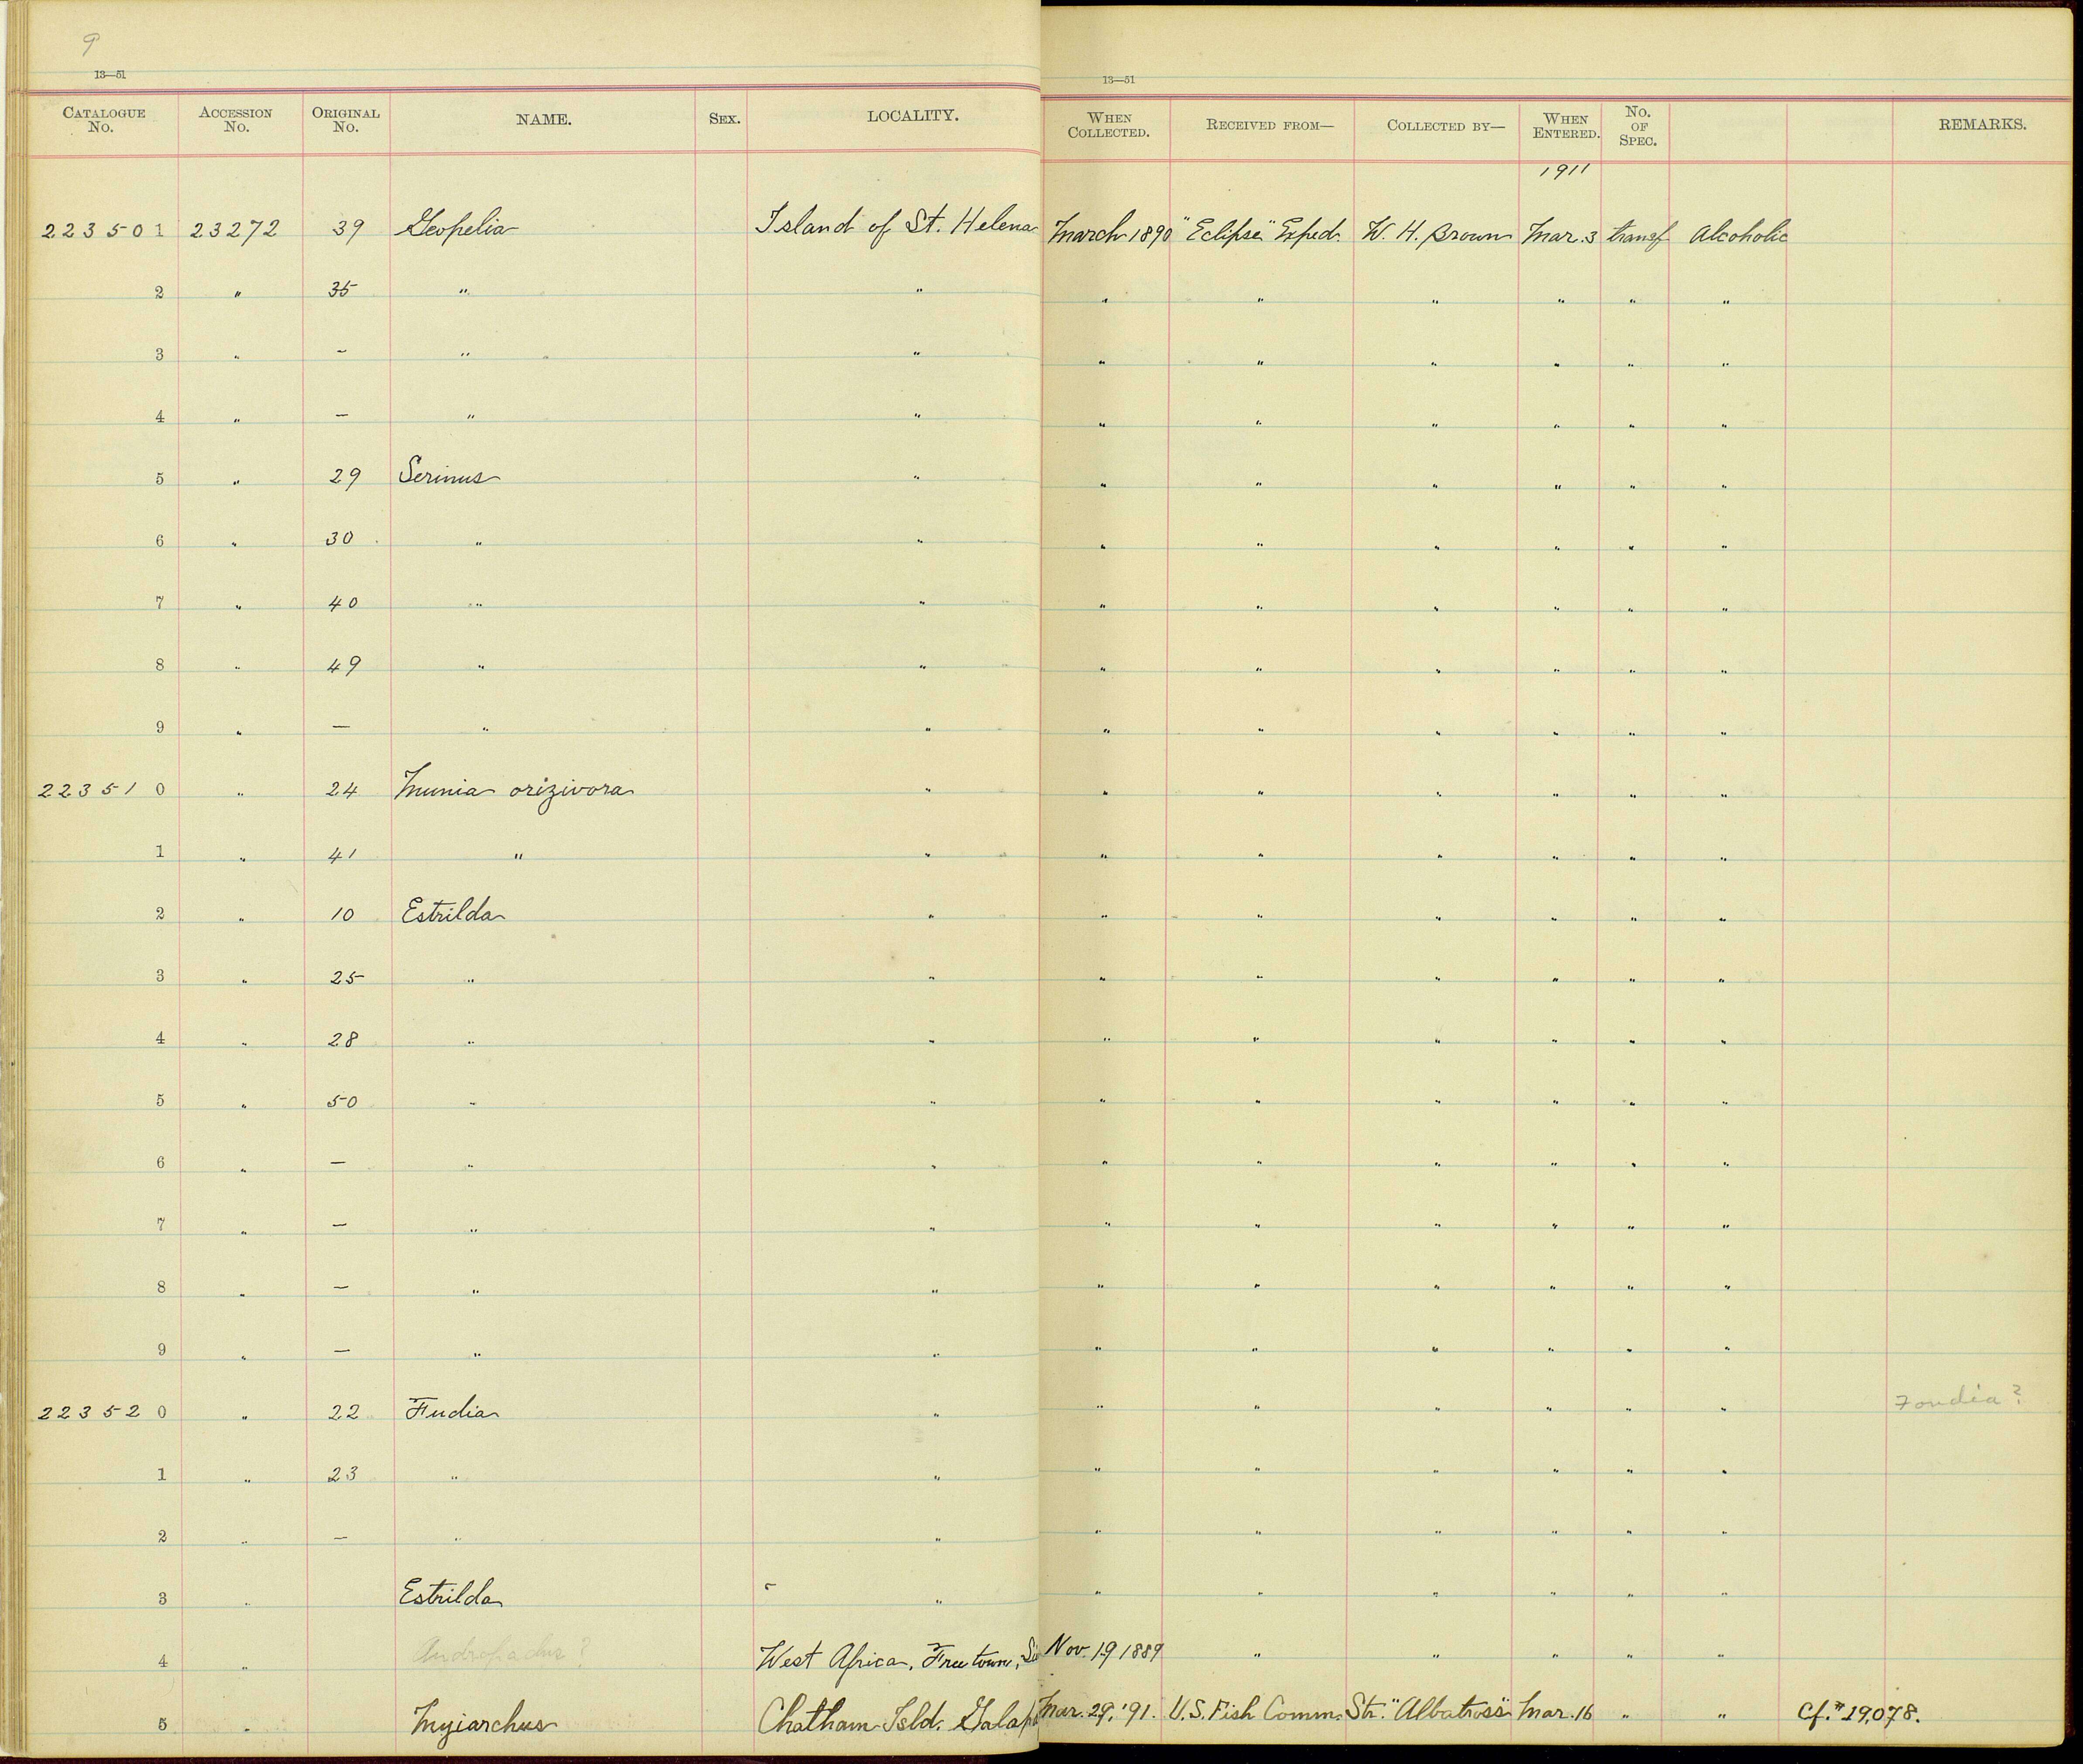 9
13—51 13—51
CATALOGUE No. ACCESSION No. ORIGINAL No. NAME. SEX. LOCALITY. WHEN COLLECTED. RECEIVED FROM— COLLECTED BY— WHEN ENTERED. No. OF SPEC. REMARKS.
1911
223501 23272 39 Geopelia Island of St. Helena March 1890 "Eclipse" Exped. W. H. Brown Mar. 3 transf. Alcoholic
2 " 35 " " " " " " " "
3 " — " " " " " " " "
4 " — " " " " " " " "
5 " 29 Serinus " " " " " " "
6 " 30 " " " " " " " "
7 " 40 " " " " " " " "
8 " 49 " " " " " " " "
9 " — " " " " " " " "
223510 " 24 Munia orizivora " " " " " " "
1 " 41 " " " " " " " "
2 " 10 Estrilda " " " " " " "
3 " 25 " " " " " " " "
4 " 28 " " " " " " " "
5 " 50 " " " " " " " "
6 " — " " " " " " " "
7 " — " " " " " " " "
8 " — " " " " " " " "
9 " — " " " " " " " "
223520 " 22 Fudia " " " " " " " Foudia?
1 " 23 " " " " " " " "
2 " — " " " " " " " "
3 " Estrilda " " " " " " "
4 " Andropadus? West Africa, Freetown, Nov. 19 1889 " " " " "
5 " Myiarchus Chatham Isld. Galap Mar. 29, '91. U.S. Fish Comm. Str. "Albatross" Mar. 16 " " Cf. # 19,078.